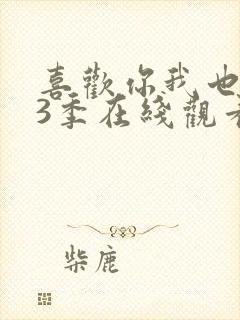 喜歡你我也
3季在綫觀
柴鹿